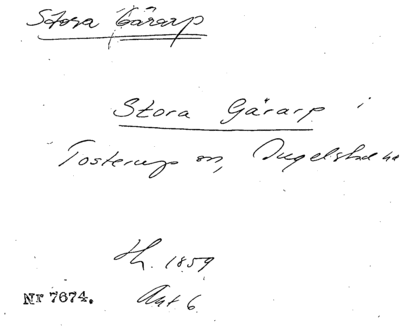 Stora Gårarp
Stora Gårarp i
Tosterup sn, Ingelstad hd
1859
Nr 7674. Akt 6